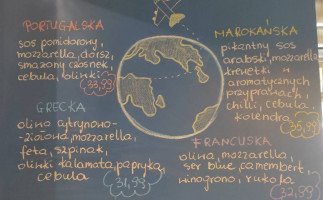 PORTUGALSKA
sos pomidorowy,
mozzarella, dorsz,
smażony czosnek,
cebula, oliwki
33,99
GRECKA
oliwa cytrynowo-
-ziołowa, mozzarella,
feta, szpinak,
oliwki kalamata, papryka,
cebula
31,99
MAROKAŃSKA
pikantny sos
arabski, mozzarella,
krewetki w
aromatycznych
przyprawach,
chili, cebula,
kolendra
35,99
FRANCUSKA
oliwa, mozzarella,
ser blue, camembert,
winogrono, rukola
32,99